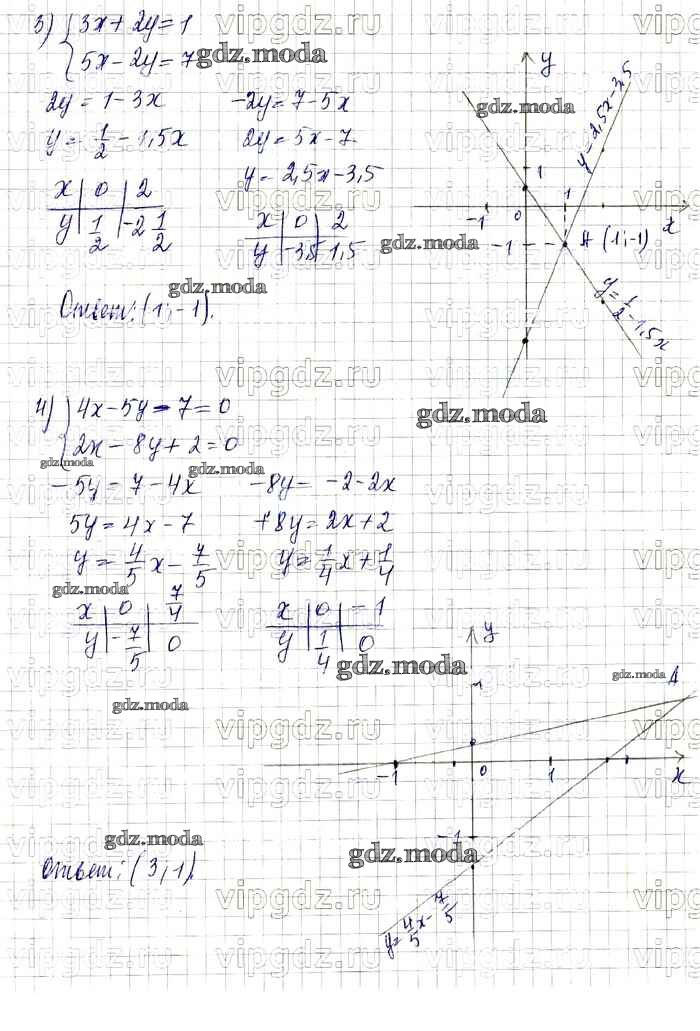 3) { 3x + 2y = 1
5x − 2y = 7
2y = 1 − 3x
−2y = 7 − 5x
y = 1/2 − 1,5x
2y = 5x − 7
y = 2,5x − 3,5
x | 0 | 2
y | 1/2 | −2 1/2
x | 0 | 2
y | −3,5 | 1,5
Ответ: (1; −1).
y
y = 2,5x − 3,5
1
1
−1
0
x
−1
A (1; −1)
y = 1/2 − 1,5x
4) { 4x − 5y − 7 = 0
2x − 8y + 2 = 0
−5y = 7 − 4x
−8y = −2 − 2x
5y = 4x − 7
+8y = 2x + 2
y = 4/5 x − 7/5
y = 1/4 x + 1/4
x | 0 | 7/4
y | −7/5 | 0
x | 0 | −1
y | 1/4 | 0
y
1
A
−1
0
1
x
−1
y = 4/5 x − 7/5
Ответ: (3; 1).
gdz.moda
vipgdz.ru